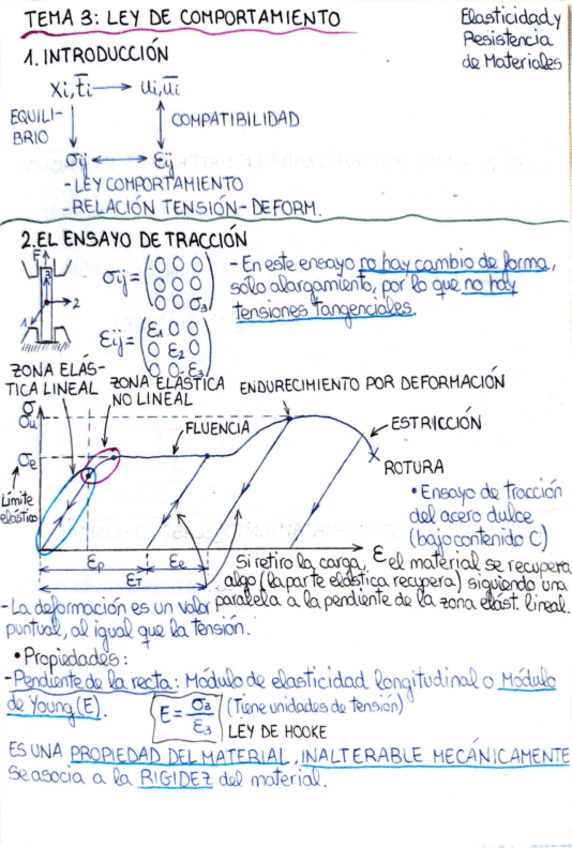 TEMA 3: LEY DE COMPORTAMIENTO
Elasticidad y
Resistencia
de Materiales
1. INTRODUCCIÓN
Xi, t̅i → ui, u̅i
EQUILI-
BRIO
COMPATIBILIDAD
σij ↔ εij
- LEY COMPORTAMIENTO
- RELACIÓN TENSIÓN - DEFORM.
2. EL ENSAYO DE TRACCIÓN
F
3
2
1
σij = (0 0 0
0 0 0
0 0 σ3)
- En este ensayo no hay cambio de forma,
sólo alargamiento, por lo que no hay
tensiones tangenciales.
εij = (ε1 0 0
0 ε2 0
0 0 ε3)
ZONA ELÁS-
TICA LINEAL
ZONA ELÁSTICA
NO LINEAL
ENDURECIMIENTO POR DEFORMACIÓN
σ
σu
FLUENCIA
ESTRICCIÓN
σe
ROTURA
Límite
elástico
• Ensayo de tracción
del acero dulce
(bajo contenido C)
εp
εe
εT
ε
Si retiro la carga, el material se recupera
algo (la parte elástica recupera) siguiendo una
paralela a la pendiente de la zona elást. lineal.
- La deformación es un valor
puntual, al igual que la tensión.
• Propiedades:
- Pendiente de la recta: Módulo de elasticidad longitudinal o Módulo
de Young (E).
E = σ3/ε3
(Tiene unidades de tensión)
LEY DE HOOKE
ES UNA PROPIEDAD DEL MATERIAL, INALTERABLE MECÁNICAMENTE
Se asocia a la RIGIDEZ del material.